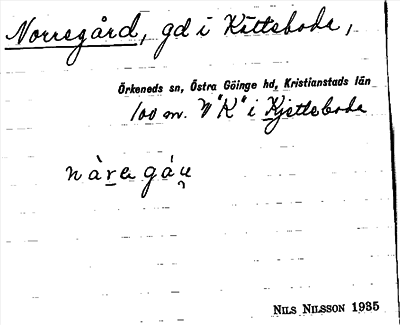 Norregård, gd i Kittsboda,
Örkeneds sn, Östra Göinge hd, Kristianstads län
100 m. N "K" i Kjettsboda
nàra gáu̯
NILS NILSSON 1935